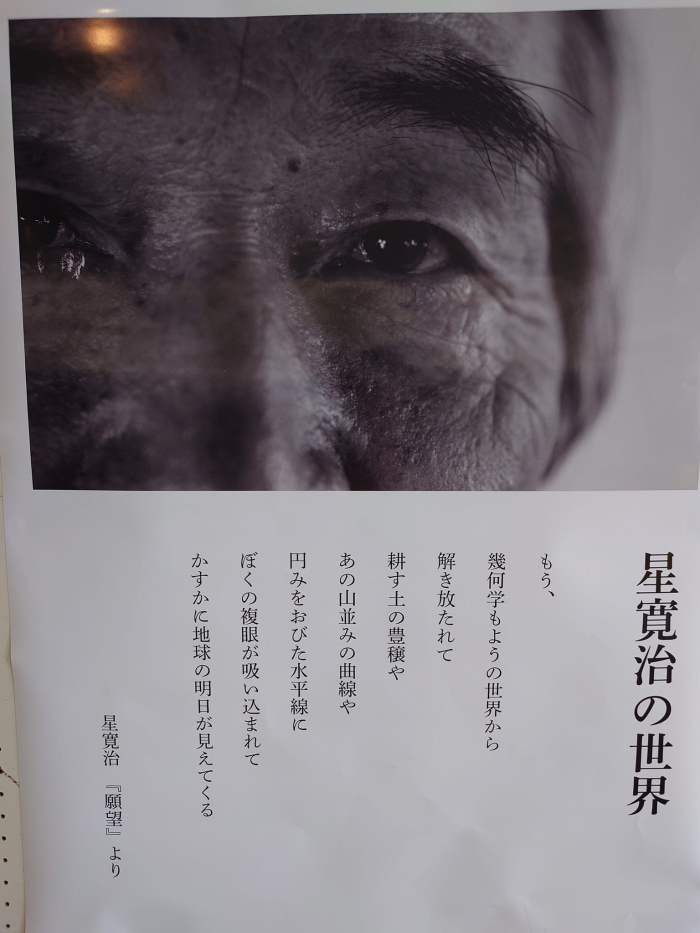 星寛治の世界
もう、
幾何学もようの世界から
解き放たれて
耕す土の豊穣や
あの山並みの曲線や
円みをおびた水平線に
ぼくの複眼が吸い込まれて
かすかに地球の明日が見えてくる
星寛治 『願望』より